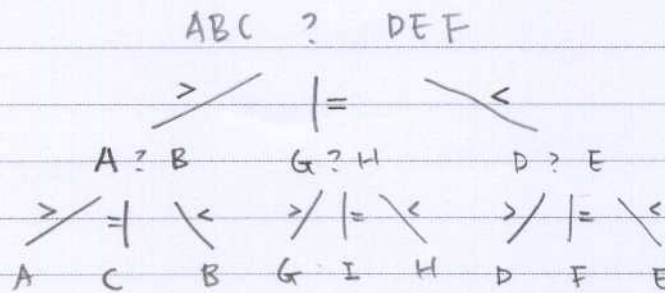 ABC ? DEF
> | = <
A ? B G ? H D ? E
> = | < > | = < > | = <
A C B G I H D F E